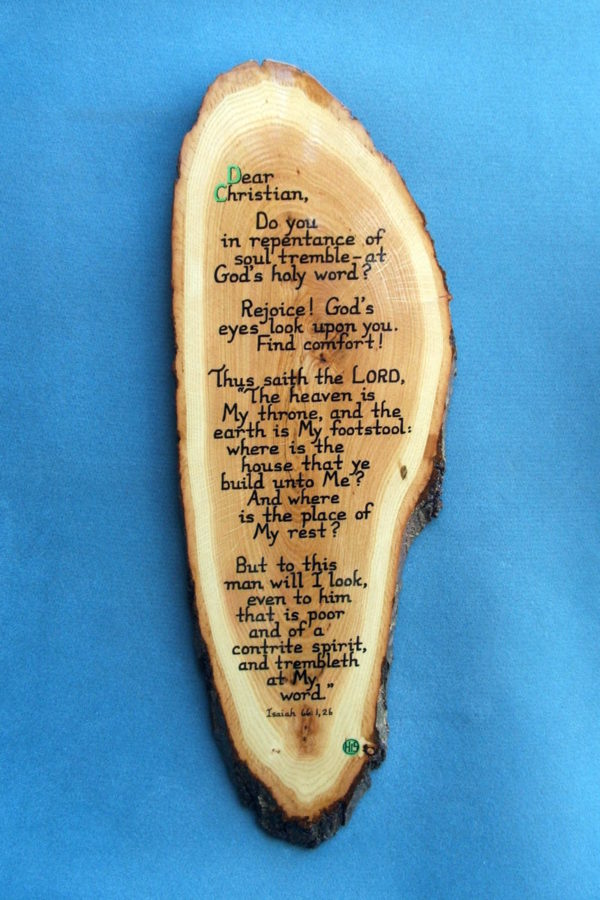 Dear
Christian,
Do you
in repentance of
soul tremble-at
God's holy word?
Rejoice! God's
eyes look upon you.
Find comfort!
Thus saith the LORD,
"The heaven is
My throne, and the
earth is My footstool:
where is the
house that ye
build unto Me?
And where
is the place of
My rest?
But to this
man will I look,
even to him
that is poor
and of a
contrite spirit,
and trembleth
at My
word."
Isaiah 66:1,2b